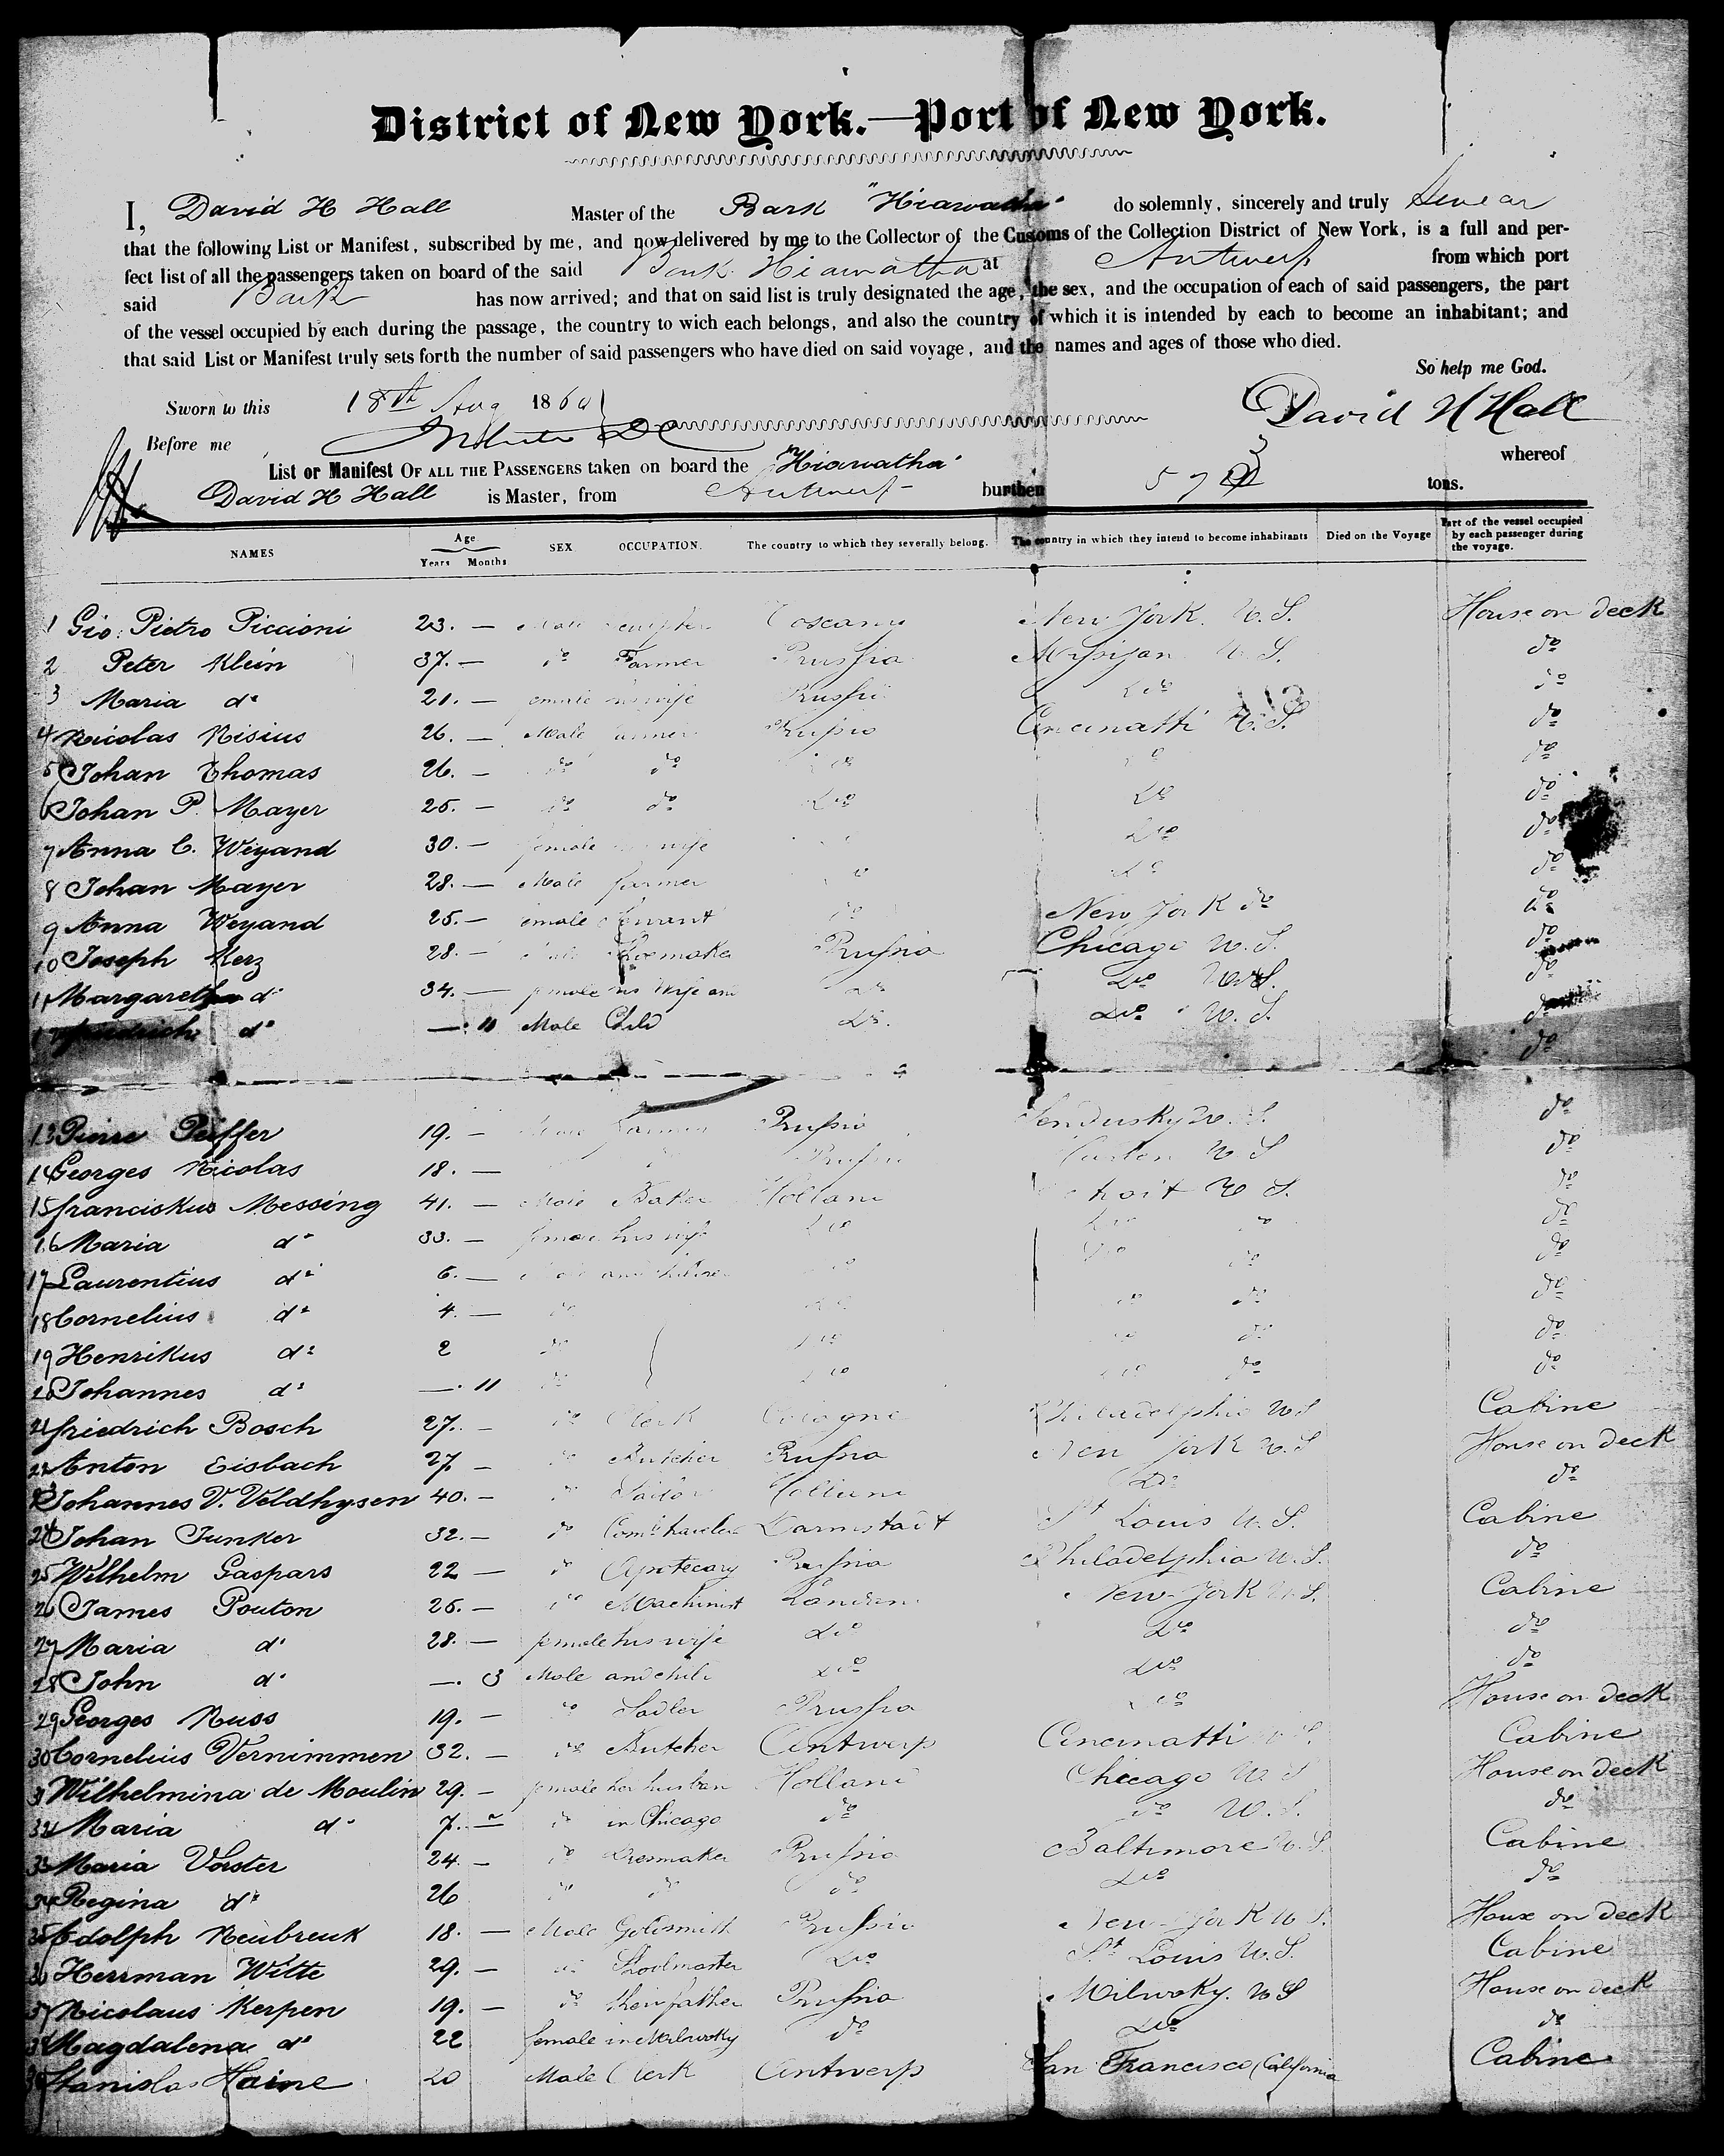 District of New York.—Port of New York.
I, David H Hall Master of the Bark "Hiawatha" do solemnly, sincerely and truly Swear
that the following List or Manifest, subscribed by me, and now delivered by me to the Collector of the Customs of the Collection District of New York, is a full and per-
fect list of all the passengers taken on board of the said Bark Hiawatha at Antwerp from which port
said Bark has now arrived; and that on said list is truly designated the age, the sex, and the occupation of each of said passengers, the part
of the vessel occupied by each during the passage, the country to wich each belongs, and also the country of which it is intended by each to become an inhabitant; and
that said List or Manifest truly sets forth the number of said passengers who have died on said voyage, and the names and ages of those who died.
So help me God.
Sworn to this 18th Aug 1860 David H Hall
Before me
List or Manifest OF ALL THE PASSENGERS taken on board the "Hiawatha" whereof
David H Hall is Master, from Antwerp burthen tons.
NAMES Age Years Months SEX OCCUPATION. The country to which they severally belong. The country in which they intend to become inhabitants Died on the Voyage Part of the vessel occupied by each passenger during the voyage.
1 Gio: Pietro Piccioni 23. — Male Sculpter Toscana New York. U.S. House on deck
2 Peter Klein 37. — do Farmer Prussia U.S. do
3 Maria do 21. — female his wife Prussia do do
4 Nicolas Risius 26. — Male farmer Prussia Cincinatti U.S. do
5 Johan Thomas 26. — do do do do do
6 Johan P. Mayer 25. — do do do do do
7 Anna C. Weyand 30. — female his wife do do
8 Johan Mayer 28. — Male farmer do do do
9 Anna Weyand 25. — female Servant do New York do do
10 Joseph Kerz 28. — Male Shoemaker Prussia Chicago U.S. do
11 Margaretha do 34. — female his Wife and do do U.S. do
12 friedrich do —. 11 Male Child do. do U.S. do
13 Pierre Peiffer 19. — Male Farmer Prussia Sendusky U.S. do
14 Georges Nicolas 18. — Prussia U.S do
15 franciskus Messing 41. — Male Baker Holland Detroit U S. do
16 Maria do 33. — female his wife do do do do
17 Laurentius do 6. — Male and children do do do do
18 Cornelius do 4. — do do do do do
19 Henrikus do 2 do do do do do
20 Johannes do —. 11 do do do do do
21 friedrich Bosch 27. — do Clerk Cologne Philadelphia U S Cabine
22 Anton Eisbach 27 — do Butcher Prussia New York U.S House on deck
23 Johannes V. Veldhysen 40. — do Sailor Holland do do
24 Johan Junker 32. — do Darmstadt St Louis U.S. Cabine
25 Wilhelm Gaspars 22 — do Apotecary Prussia Philadelphia U.S. do
26 James Pouton 26. — do Machinist London New-York U.S. Cabine
27 Maria do 28. — female his wife do do do
28 John do —. 3 Male and child do do do
29 Georges Russ 19. — do Sadler Prussia do House on deck
30 Cornelius Vernimmen 32. — do Butcher Antwerp Cincinatti U.S. Cabine
31 Wilhelmina de Moulin 29. — female her husban Holland Chicago U.S House on deck
32 Maria do 7. — do in Chicago do do U.S. do
33 Maria Vorster 24. — do Dresmaker Prussia Baltimore U.S. Cabine
34 Regina do 26 do do do do do
35 Adolph Neubreuk 18. — Male Goldsmith Prussia New-York U S. House on deck
36 Herrman Witte 29. — do Shoolmaster do St Louis U.S. Cabine
37 Nicolaus Kerpen 19. — do their father Prussia Milwoky. U S House on deck
38 Magdalena do 22 female in Milwoky do do do
39 Stanislas Haine 20 Male Clerk Antwerp San Francisco, California Cabine